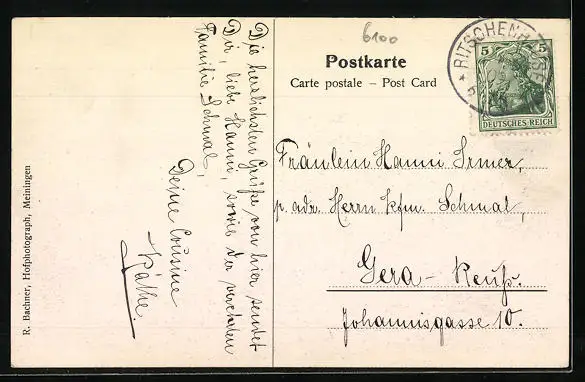 6100
Postkarte
Carte postale – Post Card
RITSCHENHAUSEN
5 5
DEUTSCHES REICH
Die herzlichsten Grüße von hier sendet
Dir, liebe Hanni, sowie der werten
Familie Schmal,
Deine Cousine
Käthe.
Fräulein Hanni Irmer,
p. adr. Herrn Kfm. Schmal,
Gera – Reuß.
Johannisgasse 10.
R. Bachner, Hofphotograph, Meiningen